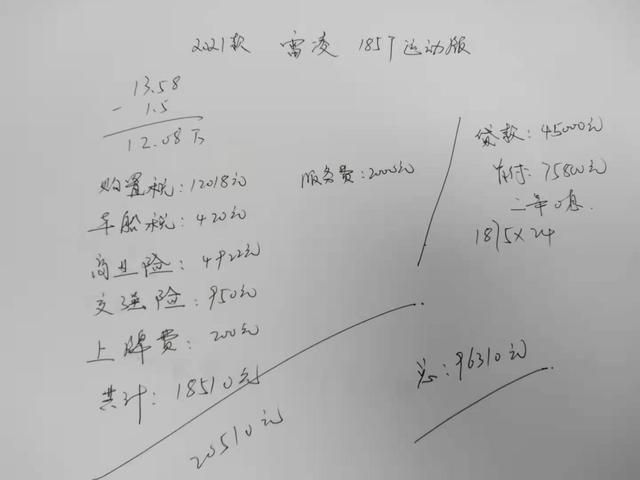 2021款 雷凌 185T运动版
13.58
- 1.5
12.08万
购置税:12018元
车船税:420元
商业险:4922元
交强险:950元
上牌费:200元
共计:18510元
20510元
服务费:2000元
贷款:45000元
首付:75800元
二年0息.
1875×24
总:96310元